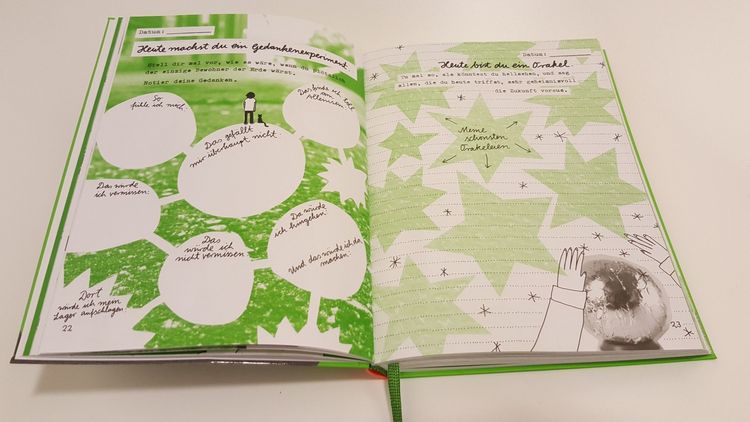 Datum:
Heute machst du ein Gedankenexperiment
Stell dir mal vor, wie es wäre, wenn du plötzlich
der einzige Bewohner der Erde wärst.
Notier deine Gedanken.
So
fühle ich mich:
Das gefällt
mir überhaupt nicht:
Das finde ich
am
Alleinsein:
Das würde
ich vermissen:
Das
würde ich
nicht vermissen
Da würde
ich hingehen:
Und das würde ich da
machen:
Dort
würde ich mein
Lager aufschlagen:
22
Datum:
Heute bist du ein Orakel
Tu mal so, als könntest du hellsehen, und sag
allen, die du heute triffst, sehr geheimnisvoll
die Zukunft voraus.
Meine
schönsten
Orakeleien
23